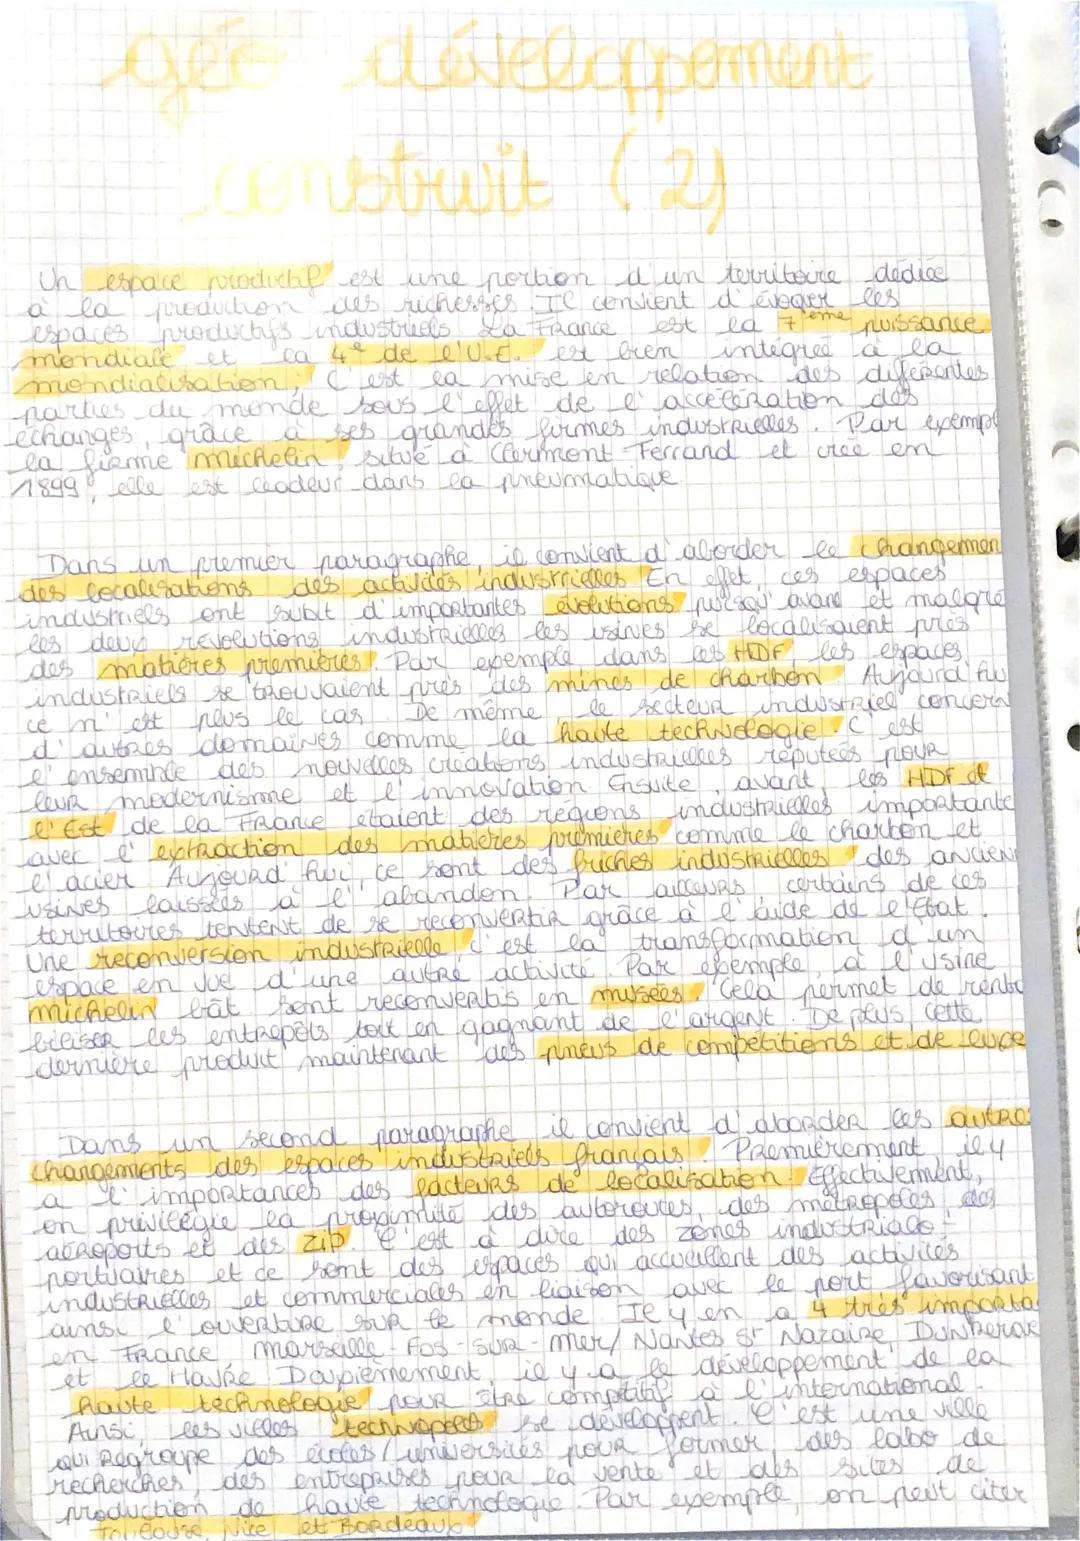 géo développement
construit (2)
Un espace productif est une portion d'un territoire dédiée
à la production des richesses. Il convient d'évoquer les
espaces productifs industriels. La France est la 7ème puissance
mondiale et la 4e de l'U.E. est bien intégrée à la
mondialisation. C'est la mise en relation des diférentes
parties du monde sous l'effet de l'accélération des
échanges, grâce à ses grandes firmes industrielles. Par exemple
la firme michelin, situé à Clermont-Ferrand et créé en
1899, elle est leadeur dans la pneumatique
Dans un premier paragraphe, il convient d'aborder le changemen
des localisations des activités industrielles En effet, ces espaces
industriels ont subit d'importantes évolutions puisqu'avant et malgré
les deux révolutions industrielles les usines se localisaient près
des matières premières. Par exemple, dans les HDF, les espaces
industriels se trouvaient près des mines de charbon. Aujourd'hui
ce n'est plus le cas. De même le secteur industriel concern
d'autres domaines comme la haute technologie. C'est
l'ensemble des nouvelles créations industrielles réputées pour
leur modernisme et l'innovation. Ensuite, avant, les HDF et
l'Est de la France étaient des régions industrielles importante
avec l'extraction des matières premières comme le charbon et
l'acier. Aujourd'hui, ce sont des friches industrielles des ancien
usines laissées à l'abandon. Par ailleurs certains de ces
territoires tentent de se reconvertir grâce à l'aide de l'Etat.
Une reconversion industrielle c'est la transformation d'un
espace en vue d'une autre activité. Par exemple, à l'usine
michelin bât sont reconvertis en musées. Cela permet de renta
biliser les entrepôts tout en gagnant de l'argent. De plus, cette
dernière produit maintenant des pneus de compétitions et de luxe
Dans un second paragraphe il convient d'aborder les autres
changements des espaces industriels français. Premièrement il y
a l'importances des facteurs de localisation. Effectivement,
on privilégie la proximité des autoroutes, des métropoles, des
aéroports et des ZIP. C'est à dire des zones industrialo-
portuaires et ce sont des espaces qui accueillent des activités
industrielles et commerciales en liaison avec le port favorisant
ainsi l'ouverture sur le monde. Il y en a 4 très importa
en France marseille-Fos-sur-mer/ Nantes St Nazaire, Dunkerque
et le Havre. Deuxièmement, il y a le développement de la
haute technologie pour être comptitif à l'international.
Ainsi, les villes technopoles se développent. C'est une ville
qui Regroupe des écoles/universités pour former, des labo de
recherches, des entreprises pour la vente et des sites de
production de haute technologie. Par exemple on peut citer
Toulouse, Nice et Bordeaux